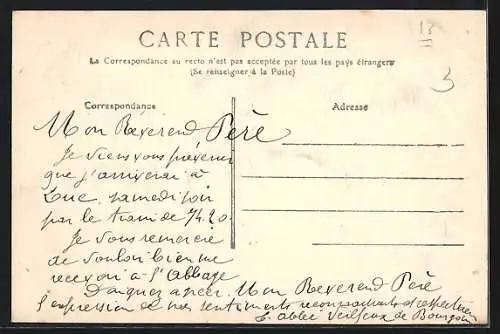 13
CARTE POSTALE
La Correspondance au recto n'est pas acceptée par tous les pays étrangers
(Se renseigner à la Poste)
3
Correspondance
Adresse
Mon Révérend Père
Je viens vous prévenir
que j'arriverai à
Luc, samedi soir
par le train de 7h20.
Je vous remercie
de vouloir bien me
recevoir à l'Abbaye
Daignez agréer, Mon Révérend Père
l'expression de mes sentiments reconnaissants et respectueux
abbé de